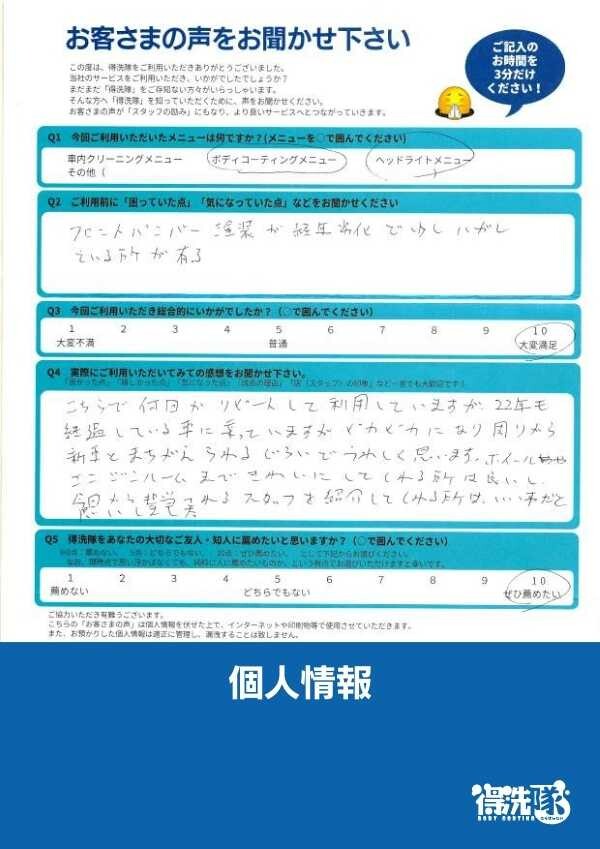 お客さまの声をお聞かせ下さい
ご記入の
お時間を
3分だけ
ください！
この度は、得洗隊をご利用いただきありがとうございました。
当社のサービスをご利用いただき、いかがでしたでしょうか？
まだまだ「得洗隊」をご存知ない方々がいらっしゃいます。
そんな方へ「得洗隊」を知っていただくために、声をお聞かせください。
お客さまの声が「スタッフの励み」にもなり、より良いサービスへとつながっていきます。
Q1 今回ご利用いただいたメニューは何ですか？(メニューを○で囲んでください)
車内クリーニングメニュー ボディコーティングメニュー ヘッドライトメニュー
その他（
Q2 ご利用前に「困っていた点」「気になっていた点」などをお聞かせください
フロントバンパー 塗装が経年劣化で少しハガレ
ている所が有る
Q3 今回ご利用いただき総合的にいかがでしたか？（○で囲んでください）
1 2 3 4 5 6 7 8 9 10
大変不満 普通 大変満足
Q4 実際にご利用いただいてみての感想をお聞かせ下さい。
「良かった点」「嬉しかった点」「気になった点」「採点の理由」「店（スタッフ）の印象」など一言でも大歓迎です！
こちらで何回かリピートして利用していますが、22年も
経過している車に乗っていますがピカピカになり周りから
新車とまちがえられるぐらいでうれしく思います。ホイール
エンジンルームまできれいにしてくれる所は良いし、
スタッフを紹介してくれる所は、いい事だと
Q5 得洗隊をあなたの大切なご友人・知人に薦めたいと思いますか？（○で囲んでください）
0点：薦めない、 5点：どちらでもない、 10点：ぜひ薦めたい、 として下記からお選びください。
1 2 3 4 5 6 7 8 9 10
薦めない どちらでもない ぜひ薦めたい
ご協力いただき有難うございます。
こちらの「お客さまの声」は個人情報を伏せた上で、インターネットや印刷物等で使用させていただきます。
また、お預かりした個人情報は適正に管理し、漏洩することは致しません。
個人情報
得洗隊